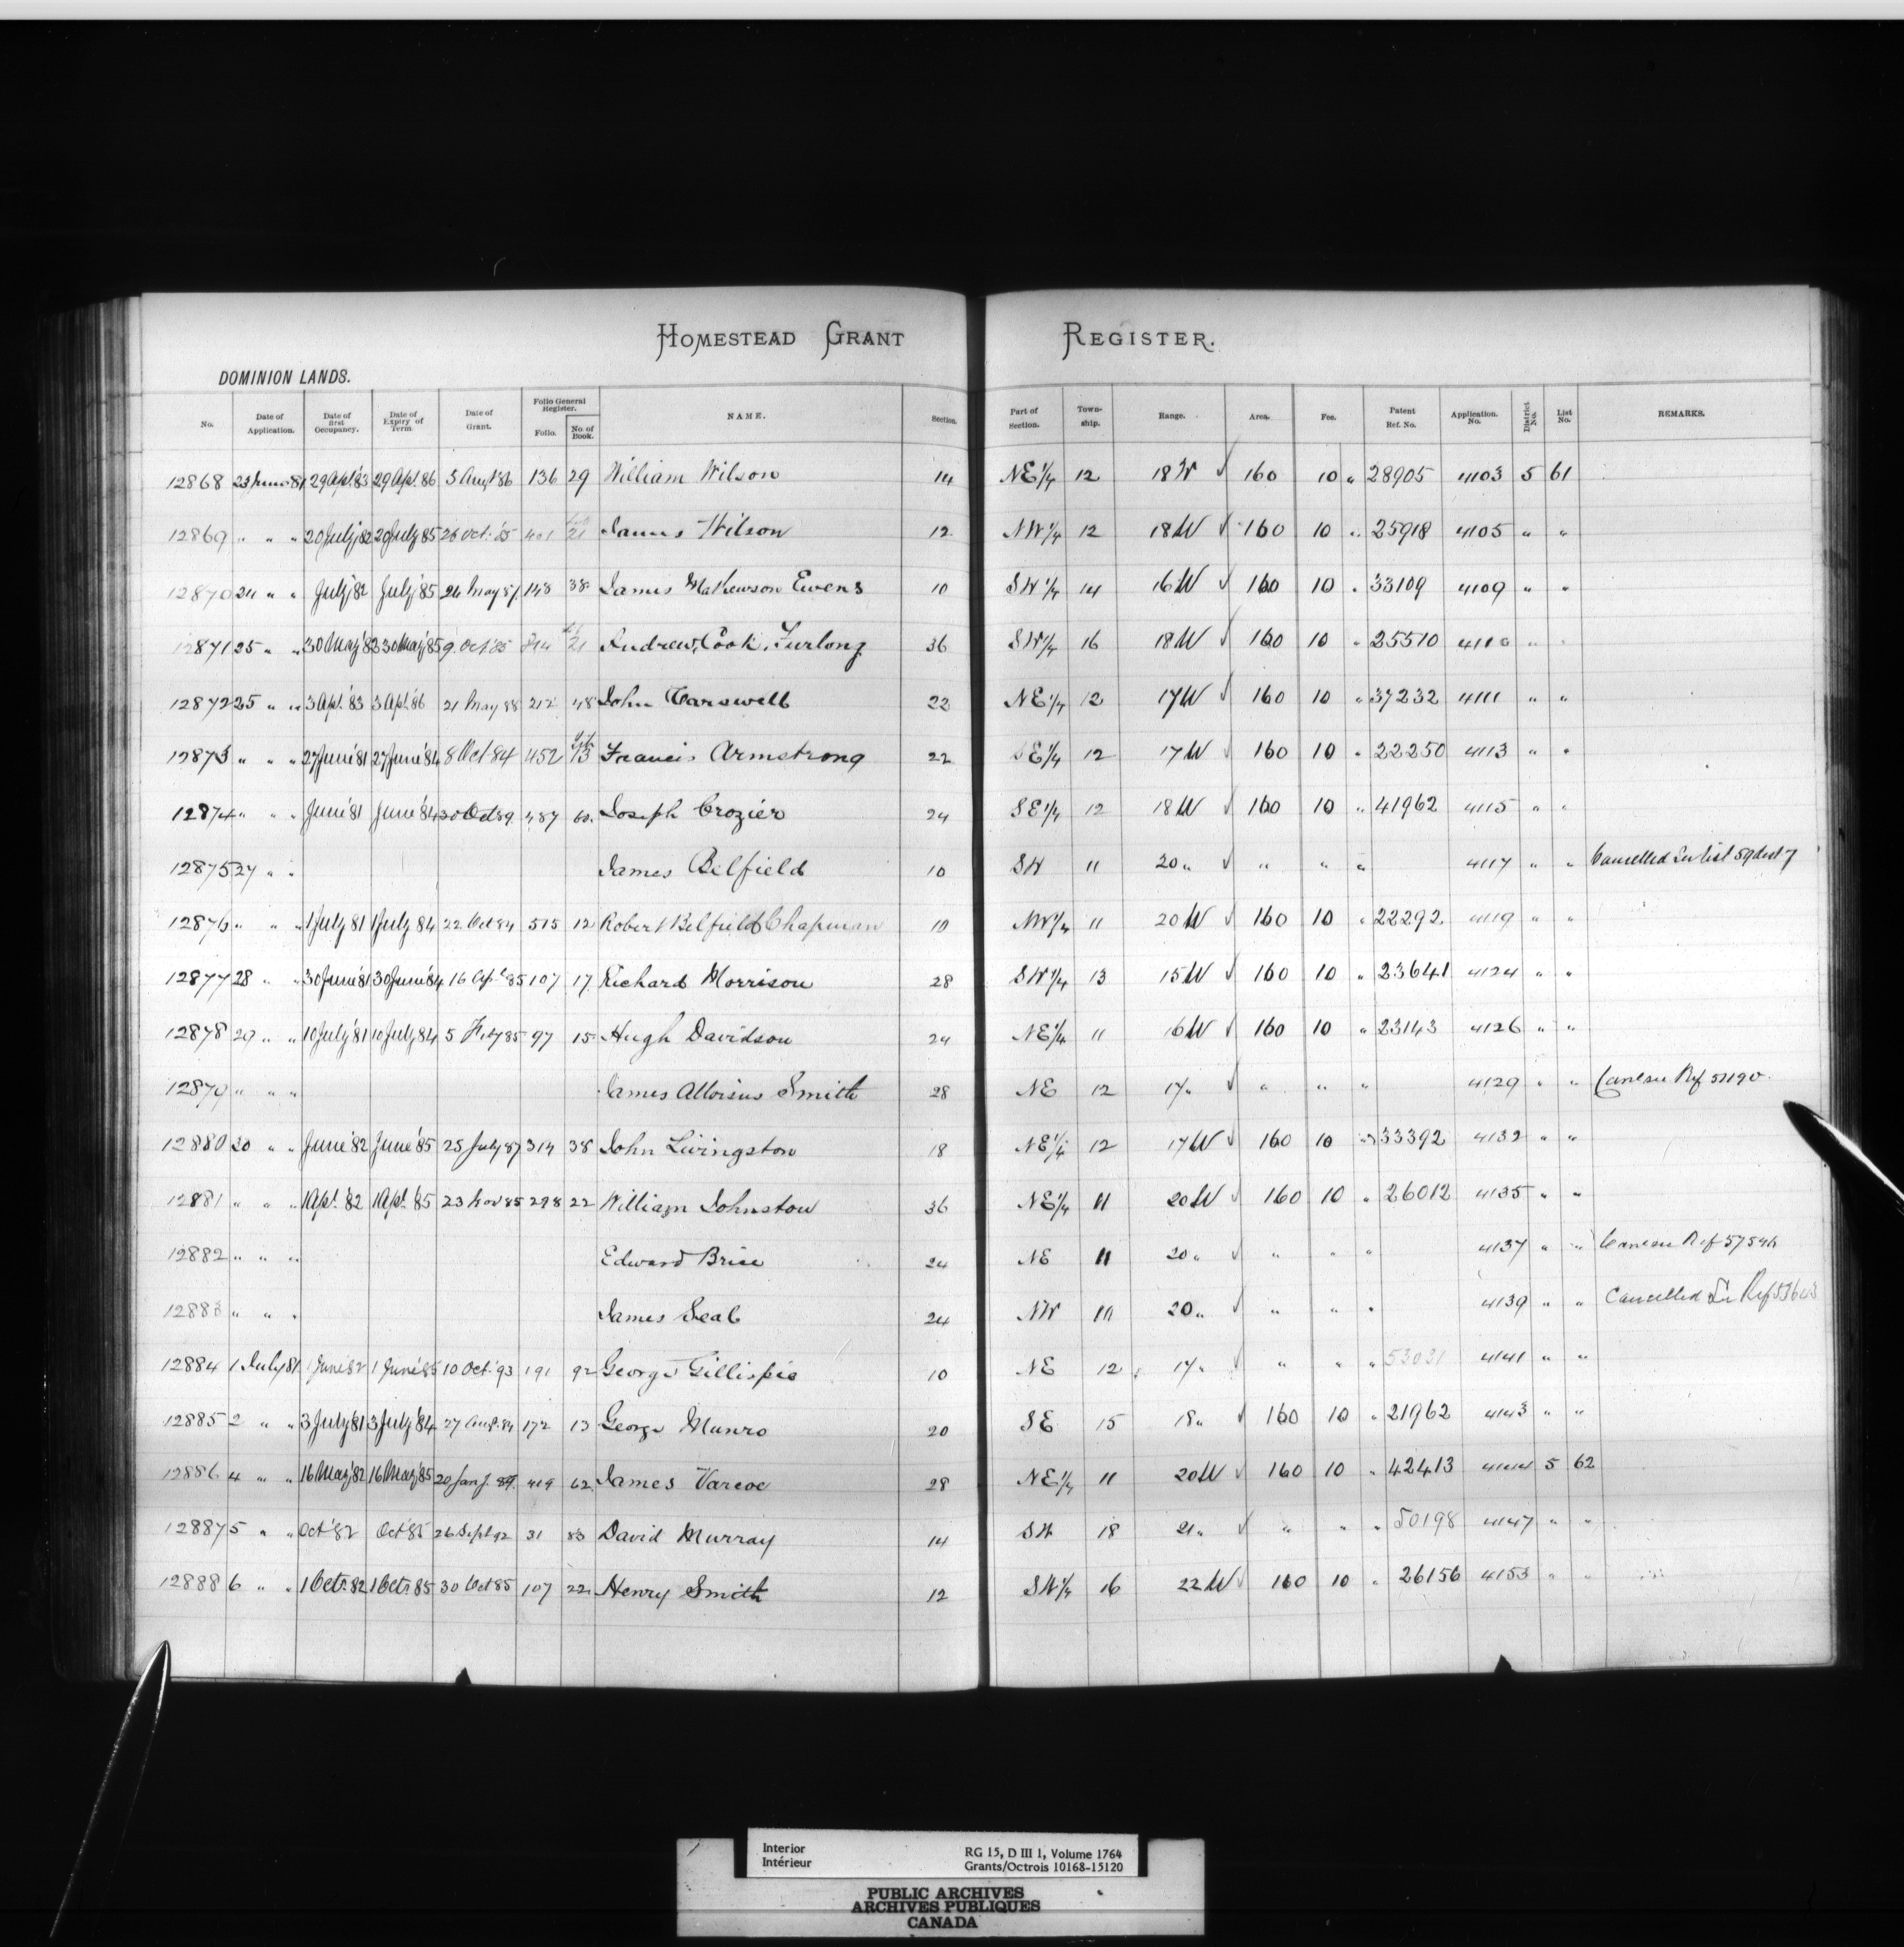 HOMESTEAD GRANT REGISTER.
DOMINION LANDS.
No. Date of Application. Date of first Occupancy. Date of Expiry of Term. Date of Grant. Folio General Register. Folio. No. of Book. NAME. Section. Part of Section. Town-ship. Range. Area. Fee. Patent Ref. No. Application. No. District No. List No. REMARKS.
12868 23 June 81 29 Apl. '83 29 Apl. 86 5 Augt 86 136 29 William Wilson 14 NE 1/4 12 18 W ✓ 160 10 " 28905 4103 5 61
12869 " " " 20 July '82 20 July 85 26 Oct. 85 401 21 James Wilson 12 NW 1/4 12 18 W ✓ 160 10 " 25918 4105 " "
12870 24 " " July '82 July '85 26 May 87 148 38 James Mathewson Ewens 10 SW 1/4 14 16 W ✓ 160 10 " 33109 4109 " "
12871 25 " " 30 May '82 30 May '85 9 Oct 85 21 Andrew Cook Furlong 36 SW 1/4 16 18 W ✓ 160 10 " 25510 4110 " "
12872 25 " " 3 Apl. '83 3 Apl. '86 21 May 88 212 48 John Carswell 22 NE 1/4 12 17 W ✓ 160 10 " 37232 4111 " "
12873 " " " 27 June '81 27 June '84 8 Oct 84 452 13 Francis Armstrong 22 SE 1/4 12 17 W ✓ 160 10 " 22250 4113 " "
12874 " " " June '81 June '84 30 Oct 89 487 60. Joseph Crozier 24 SE 1/4 12 18 W ✓ 160 10 " 41962 4115 " "
12875 27 " " James Belfield 10 SW 11 20 " ✓ " " " 4117 " " Cancelled See list 59 dist 7
12876 " " " 1 July 81 1 July 84 22 Oct 84 515 12 Robert Belfield Chapman 10 NW 1/4 11 20 W ✓ 160 10 " 22292 4119 " "
12877 28 " " 30 June '81 30 June '84 16 Apl. 85 107 17 Richard Morrison 28 SW 1/4 13 15 W ✓ 160 10 " 23641 4124 " "
12878 29 " " 10 July '81 10 July '84 5 Feby 85 97 15 Hugh Davidson 24 NE 1/4 11 16 W ✓ 160 10 " 23143 4126 " "
12879 " " " James Alloisius Smith 28 NE 12 17 " ✓ " " " 4129 " " Ref
12880 30 " " June '82 June '85 25 July 87 314 38 John Livingston 18 NE 1/4 12 17 W ✓ 160 10 " 33392 4132 " "
12881 " " " 1 Apl. '82 1 Apl. '85 23 Nov 85 298 22 William Johnston 36 NE 1/4 11 20 W ✓ 160 10 " 26012 4135 " "
12882 " " " Edward Brice 24 NE 11 20 " ✓ " " " 4137 " " Ref
12883 " " " James Seal 24 NW 11 20 " ✓ " " " 4139 " " Cancelled See Ref
12884 1 July 81 1 June '82 1 June '85 10 Oct. 93 191 92 George Gillispie 10 NE 12 17 " ✓ " " " 53031 4141 " "
12885 2 " " 3 July '81 3 July '84 27 Augt. 84 172 13 George Munro 20 SE 15 18 " ✓ 160 10 " 21962 4143 " "
12886 4 " " 16 May '82 16 May '85 20 Jany. 89 419 62 James Varcoe 28 NE 1/4 11 20 W ✓ 160 10 " 42413 4144 5 62
12887 5 " " Oct '82 Oct '85 26 Sept 92 31 83 David Murray 14 SW 18 21 " ✓ " " " 50198 4147 " "
12888 6 " " 1 Octr. 82 1 Octr. 85 30 Oct 85 107 22 Henry Smith 12 SW 1/4 16 22 W ✓ 160 10 " 26156 4153 " "
Interior
Intérieur
RG 15, D III 1, Volume 1764
Grants/Octrois 10168-15120
PUBLIC ARCHIVES
ARCHIVES PUBLIQUES
CANADA